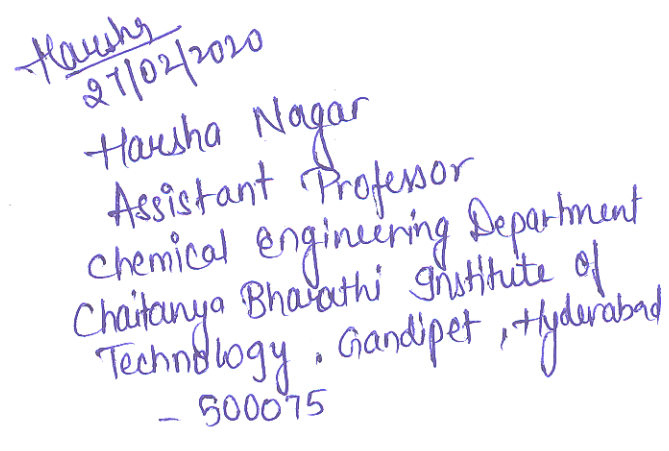 Harsha
27/02/2020
Harsha Nagar
Assistant Professor
Chemical Engineering Department
Chaitanya Bharathi Institute of
Technology. Gandipet, Hyderabad
- 500075